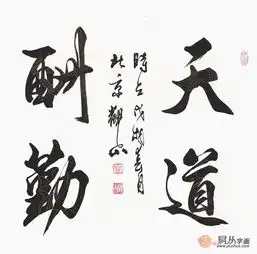 天道
酬勤
時在戊戌春月
北京觀山
易从字画
www.yicongzihua.com